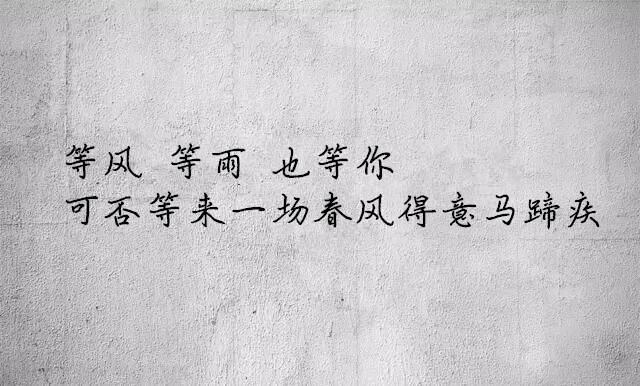 等风 等雨 也等你
可否等来一场春风得意马蹄疾